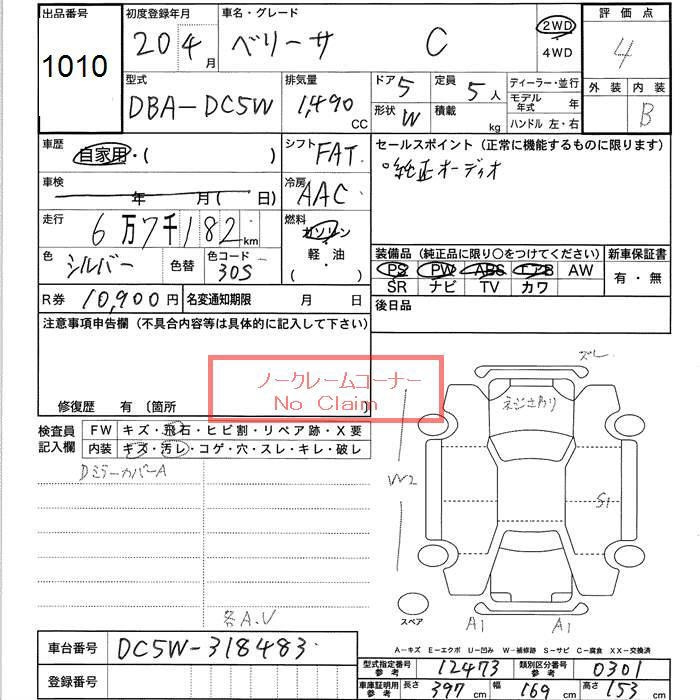 出品番号 初度登録年月 車名・グレード 評価点
1010 20 4月 ベリーサ C 2WD 4WD 4
型式 排気量 ドア 5 定員 5人 ディーラー・並行 外装 内装
DBA-DC5W 1,490 CC 形状 W 積載 kg モデル年式 年 B
ハンドル 左・右
車歴 自家用・( ) シフト FAT セールスポイント(正常に機能するものに限ります)
車検 年 月( 日) 冷房 AAC 純正オーディオ
走行 6万7千182km 燃料 ガソリン
色 シルバー 色替 色コード 30S 軽・油 ( ・ ) 装備品(純正品に限り○をつけてください) 新車保証書
PS PW ABS エアB AW 有・無
SR ナビ TV カワ
R券 10,900円 名変通知期限 月 日 後日品
注意事項申告欄(不具合内容等は具体的に記入して下さい)
ノークレームコーナー
No Claim
修復歴 有 〔箇所
ズレ
ネジさわり
検査員記入欄 FW キズ・飛石・ヒビ割・リペア跡・X要
内装 キズ・汚レ・コゲ・穴・スレ・キレ・破レ
Dミラーカバー A
W2
S1
スペア
A1 A1
各A.U
A-キズ E-エクボ U-凹み W-補修跡 S-サビ C-腐食 XX-交換済
車台番号 DC5W-318483
登録番号
型式指定番号 参考 12473 類別区分番号 参考 0301
車庫証明用 参考 長さ 397cm 幅 169cm 高さ 153cm